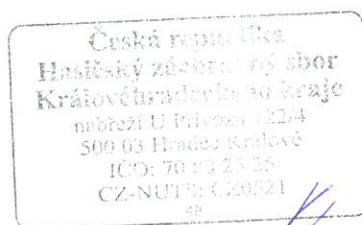 Česká republika
Hasičský záchranný sbor
Královéhradeckého kraje
nábřeží U Přívozu 122/4
500 03 Hradec Králové
IČO: 70 82 25
CZ-NUTS: CZ0521